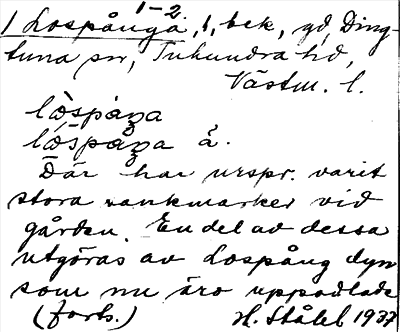 1-2.
1 Lospånga, 1, bek, gd, Ding-
tuna sn, Tuhundra hd,
Västm. l.
lo̊spåŋa
lo̊spåŋa å.
Där har urspr. varit
stora sankmarker vid
gården. En del av dessa
utgöras av Lospång dyn
som nu äro uppodlade
(forts.) H. Ståhl 1937